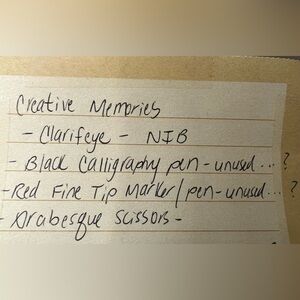 Creative Memories
- Clarifeye - NIB
- Black Calligraphy pen - unused...?
- Red Fine Tip Marker/pen - unused...?
- Arabesque Scissors -